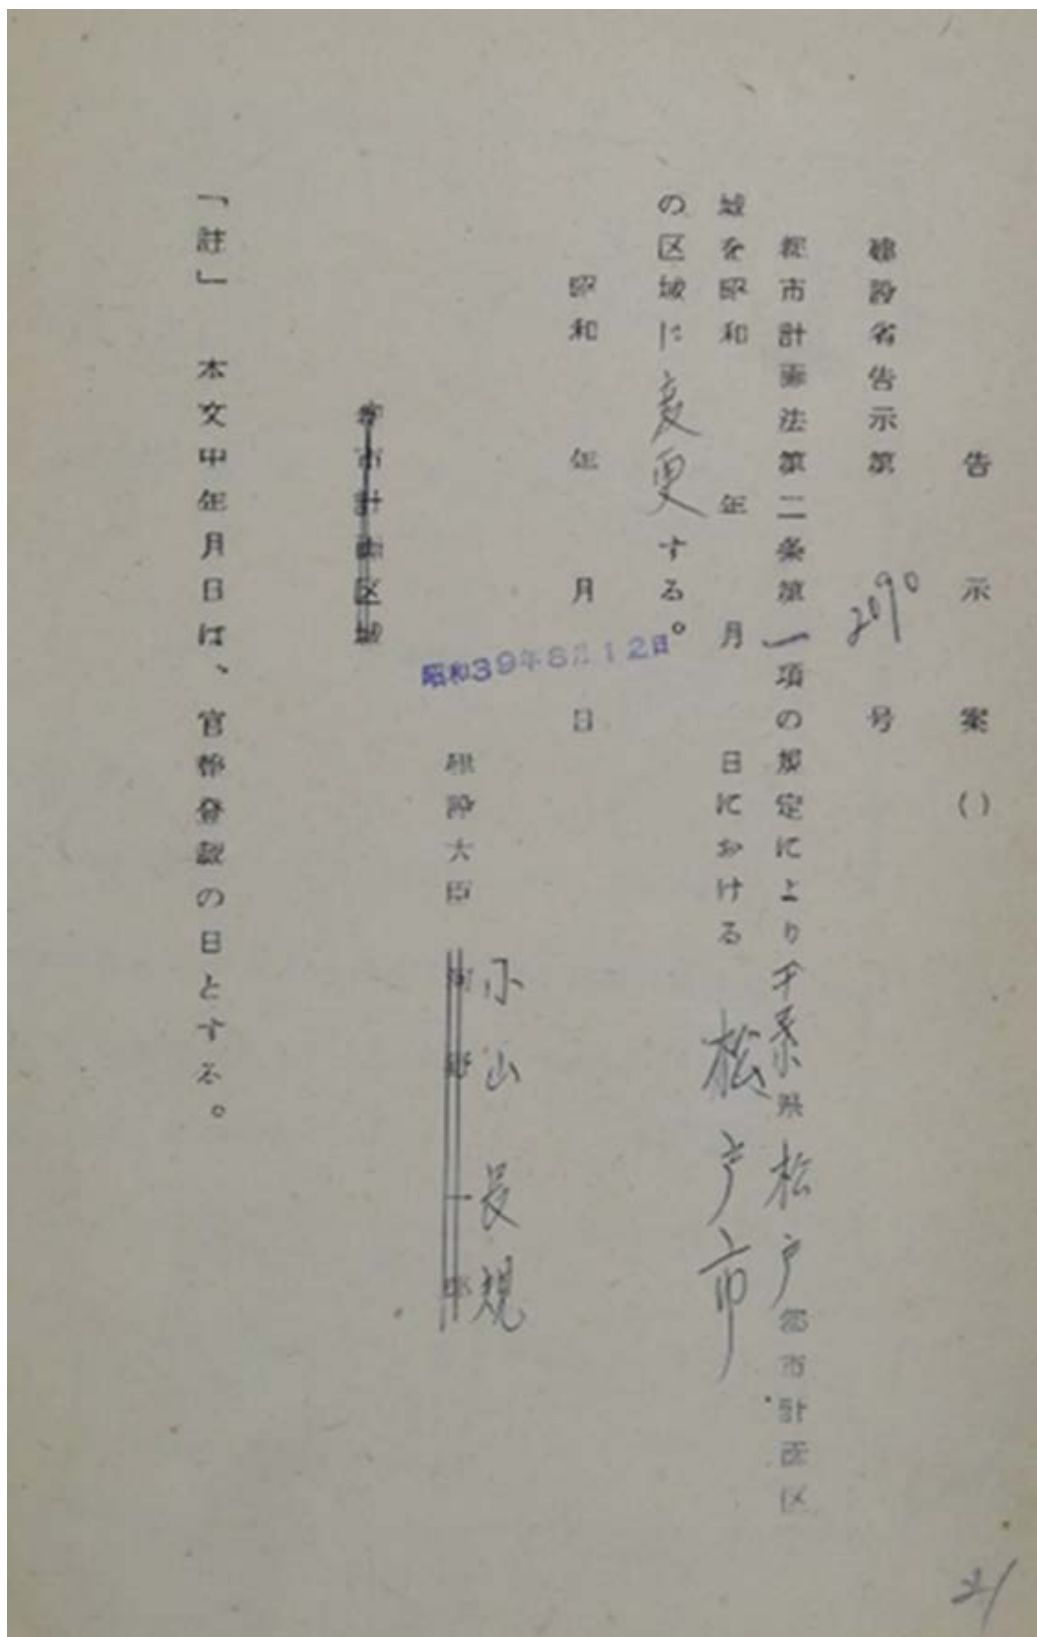 告示案()
建設省告示第2090号
都市計画法第二条第一項の規定により千葉県松戸都市計画区
域を昭和 年 月 日における松戸市
の区域に変更する。
昭和 年 月 日
昭和39年8月12日
小山長規
建設大臣 河野一郎
都市計画区域
「註」 本文中年月日は、官報登載の日とする。
21